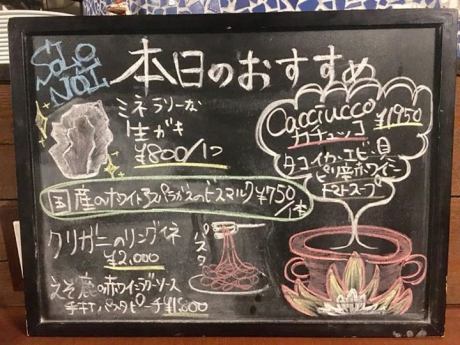 SOLO
NOI
本日のおすすめ
ミネラリーな
生ガキ
¥800/1コ
国産のホワイトアスパラガスのビスマルク ¥750/1本
クリガニのリングイネ
¥2,000
パスタ
えぞ鹿の赤ワインラグーソース
手キリパスタピーチ ¥1,800
Cacciucco
カチュッコ ¥1950
タコ、イカ、エビ、貝
ピリ辛赤ワイン
トマトスープ